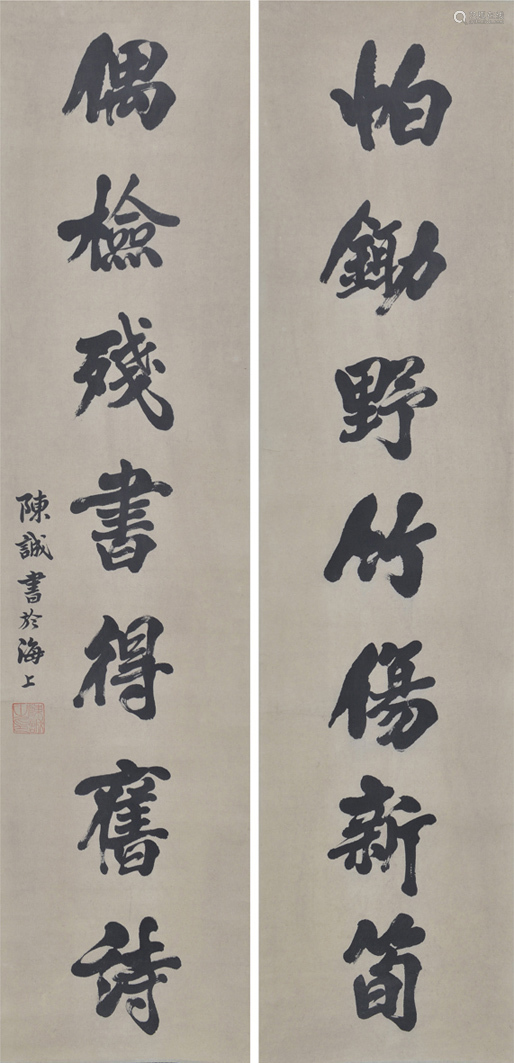 怕鋤野竹傷新筍
偶檢殘書得舊詩
陳誠書於海上